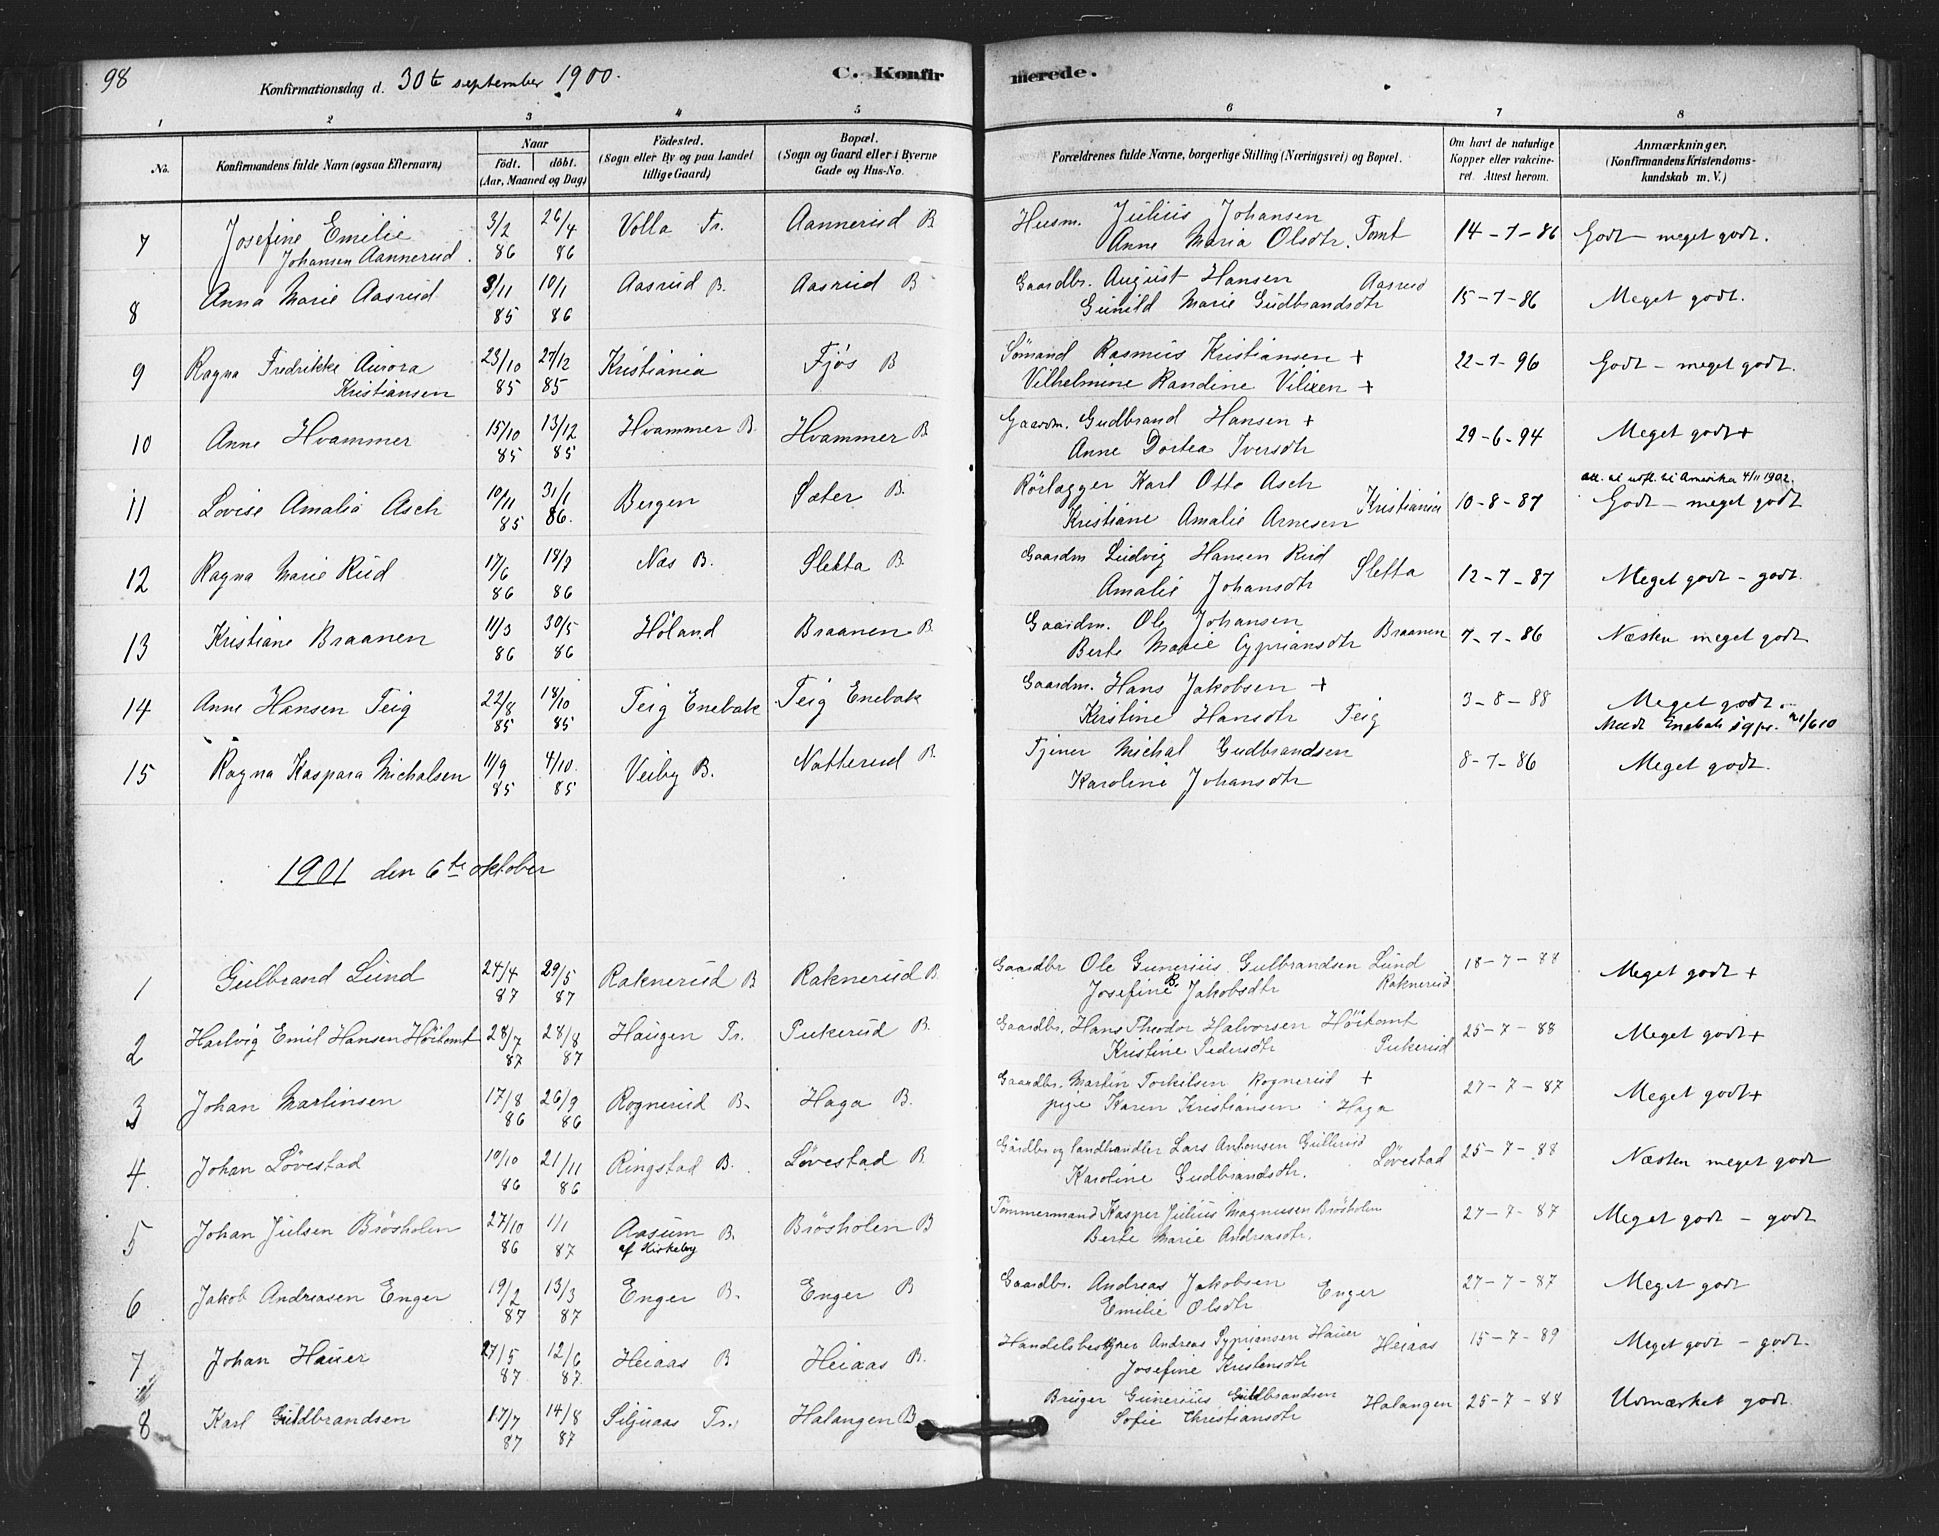 98
Konfirmationsdag d. 30te september 1900.
C. Konfirmerede.
1 2 3 4 5 6 7 8
No. Konfirmandens fulde Navn (ogsaa Efternavn) Naar født. døbt. (Aar, Maaned og Dag) Fødested. (Sogn eller By og paa Landet tillige Gaard) Bopæl. (Sogn og Gaard eller i Byerne Gade og Hus-No. Forældrenes fulde Navne, borgerlige Stilling (Næringsvei) og Bopæl. Om havt de naturlige Kopper eller vakcineret. Attest herom. Anmærkninger, (Konfirmandens Kristendomskundskab m. V.)
7 Josefine Emilie Johansen Aannerud. 3/2 86 26/4 86 Volla Tr. Aannerud B Husm. Julius Johansen Anne Maria Olsdtr. Tomt 14-7-86 Godt - meget godt.
8 Anna Marie Aasrud 3/11 85 10/1 86 Aasrud B. Aasrud B Gaardbr. August Hansen Aasrud Gunild Marie Gudbrandsdtr 15-7-86 Meget godt.
9 Ragna Fredrikke Aurora Kristiansen 23/10 85 27/12 85 Kristiania Fjøs B Sømand Rasmus Kristiansen + Vilhelmine Randine Vilixen + 22-7-96 Godt - meget godt.
10 Anne Hvammer 15/10 85 13/12 85 Hvammer B Hvammer B Gaardm. Gudbrand Hansen + Anne Dortea Iversdtr 29-6-94 Meget godt+
11 Lovise Amalia Asch 10/11 85 31/1 86. Bergen Sæter B. Rörlægger Karl Otto Asch Kristiane Amalie Arnesen Kristiania 10-8-87 att. at udfl. til Amerika 4/11 1902. Godt - meget godt
12 Ragna Marie Rud 17/6 86 18/7 86 Nas B. Sletta B. Gaardm Ludvig Hansen Rud Amalie Johansdtr Sletta 12-7-87 Meget godt - godt.
13 Kristiane Braanen 11/3 86 30/5 86 Høland Braanen B. Gaardm. Ole Johansen Berte Marie Cypriansdtr Braanen 7-7-86 Næsten meget godt
14 Anne Hansen Teig 22/8 85 18/10 85 Teig Enebak Teig Enebak Gaardm. Hans Jakobsen + Kristine Hansdtr Teig 3-8-88 Meget godt.
15 Ragna Kaspara Michalsen 11/9 85 4/10 85 Veiby B. Natterud B. Tjener Michal Gudbrandsen Karoline Johansdtr 8-7-86 Meget godt.
1901 den 6te oktober
1 Gulbrand Lund 24/4 87 29/5 87 Raknerud B Raknerud B Gaardbr Ole Gunerius Gulbrandsen Lund Josefine B. Jakobsdtr Raknerud 18-7-88 Meget godt+
2 Hartvig Emil Hansen Höitomt 28/7 87 28/8 87 Haugen Tr. Pukerud B. Gaardbr. Hans Theodor Halvorsen Höitomt Kristine Pedersdtr Pukerud 25-7-88 Meget godt+
3 Johan Martinsen 17/8 86 26/9 86 Rognerud B. Haga B. Gaardbr. Martin Torkilsen Rognerud + pige Karen Kristiansen Haga 27-7-87 Meget godt+
4 Johan Løvestad 19/10 86 21/11 86 Ringstad B. Løvestad B Gårdbr og landhandler Lars Antonsen Gullerud Karoline Gudbrandsdtr. Løvestad 25-7-88 Næsten meget godt
5 Johan Julsen Brösholen 27/10 86 1/1 87 Aasum B. af Kirkeby Brösholen B Tömmermand Kasper Julius Magnusen Brösholen Berte Marie Andreasdtr. 27-7-87 Meget godt - godt
6 Jakob Andreasen Enger 19/2 87 13/3 87 Enger B. Enger B Gaardbr. Andreas Jakobsen Emilie Olsdtr Enger 27-7-87 Meget godt
7 Johan Hauer 27/5 87 12/6 87 Heiaas B Heiaas B. Handelsbestyrer Andreas Syprjansen Hauer Josefine Kristensdtr Heiaas 15-7-89 Meget godt - godt.
8 Karl Guldbrandsen 17/7 87 14/8 87 Siljuaas Tr. Halangen B Bruger Gunerius Guldbrandsen Sofie Christiansdtr Halangen 25-7-88 Udmærket godt.